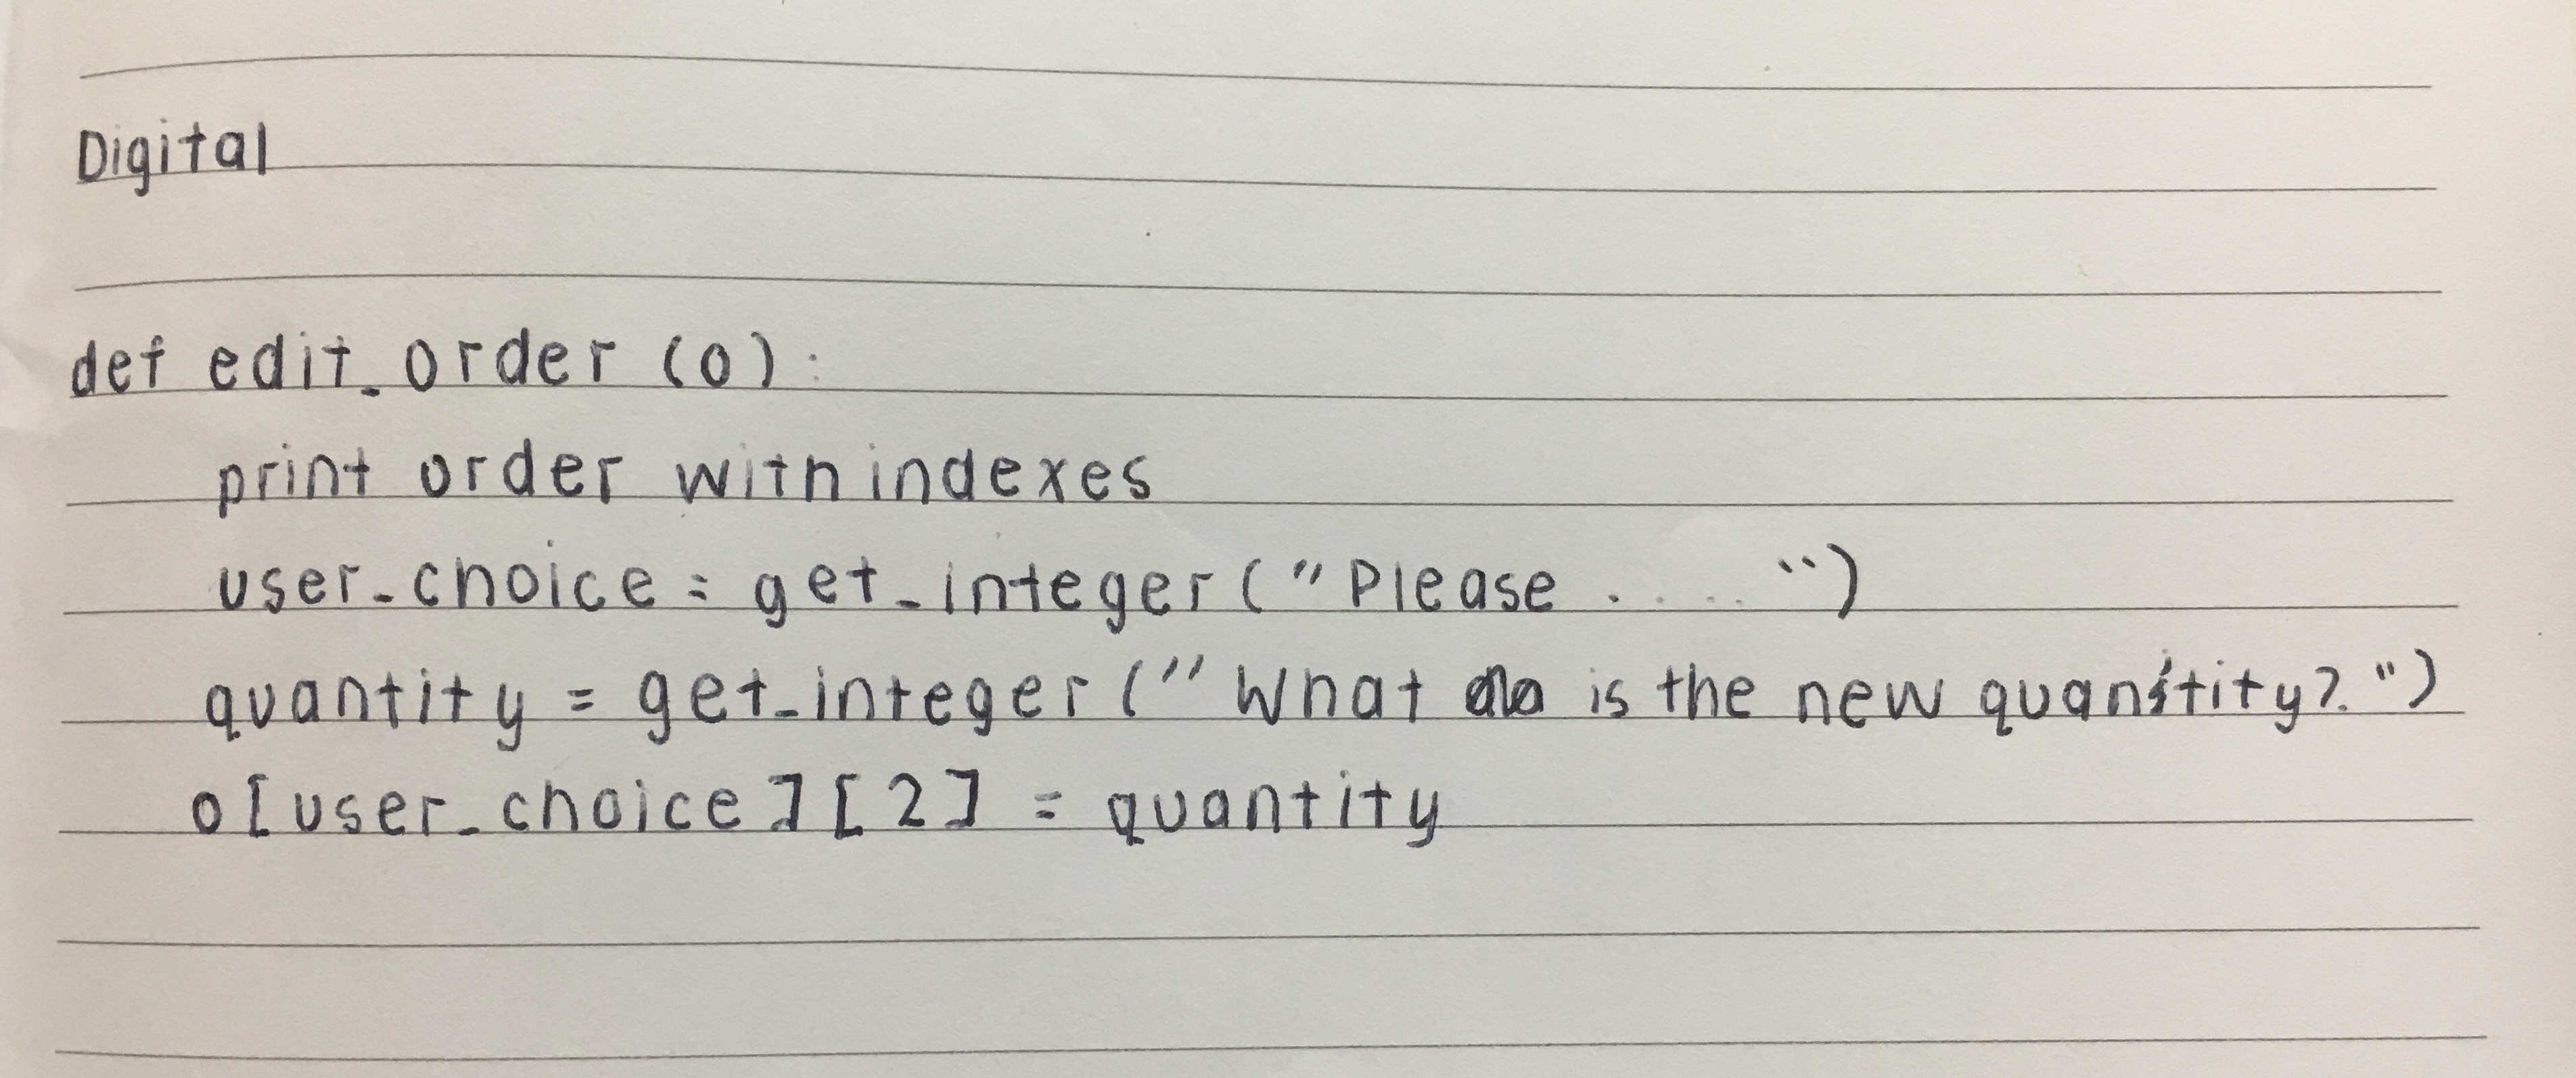 Digital
def edit_order (o):
print order with indexes
user_choice = get_integer ("Please . . . . ")
quantity = get_integer ("What is the new quantity?")
o[user_choice][2] = quantity